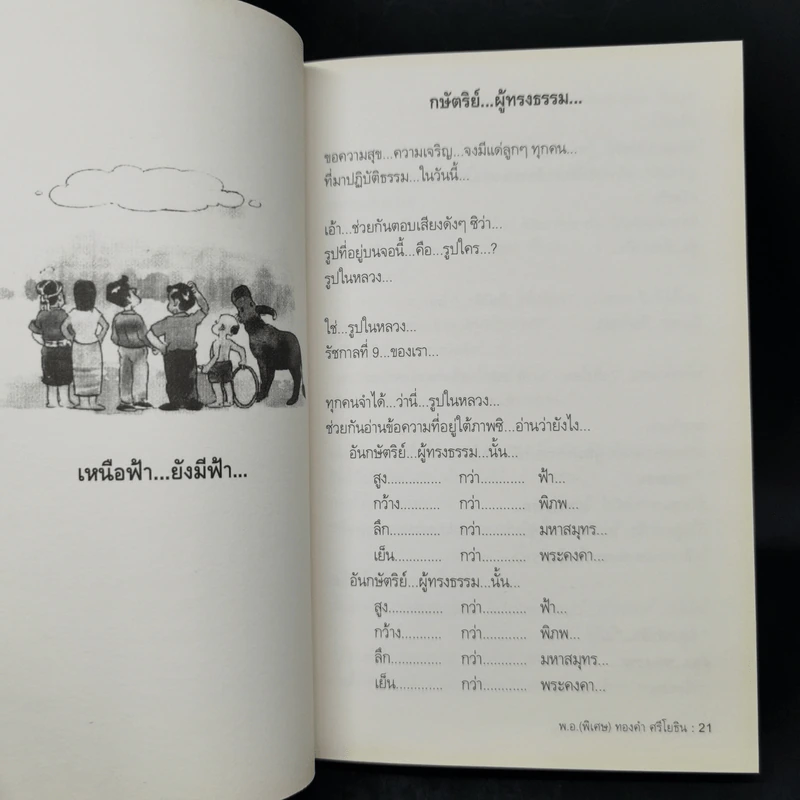 เหนือฟ้า...ยังมีฟ้า...
กษัตริย์...ผู้ทรงธรรม...
ขอความสุข...ความเจริญ...จงมีแด่ลูกๆ ทุกคน...
ที่มาปฏิบัติธรรม...ในวันนี้...
เอ้า...ช่วยกันตอบเสียงดังๆ ซิว่า...
รูปที่อยู่บนจอนี้...คือ...รูปใคร...?
รูปในหลวง...
ใช่...รูปในหลวง...
รัชกาลที่ 9...ของเรา...
ทุกคนจำได้...ว่านี่...รูปในหลวง...
ช่วยกันอ่านข้อความที่อยู่ใต้ภาพซิ...อ่านว่ายังไง...
อันกษัตริย์...ผู้ทรงธรรม...นั้น...
สูง.............. กว่า............ ฟ้า...
กว้าง........... กว่า............ พิภพ...
ลึก.............. กว่า............ มหาสมุทร...
เย็น............. กว่า............ พระคงคา...
อันกษัตริย์...ผู้ทรงธรรม...นั้น...
สูง.............. กว่า............ ฟ้า...
กว้าง........... กว่า............ พิภพ...
ลึก.............. กว่า............ มหาสมุทร...
เย็น............. กว่า............ พระคงคา...
พ.อ.(พิเศษ) ทองคำ ศรีโยธิน : 21